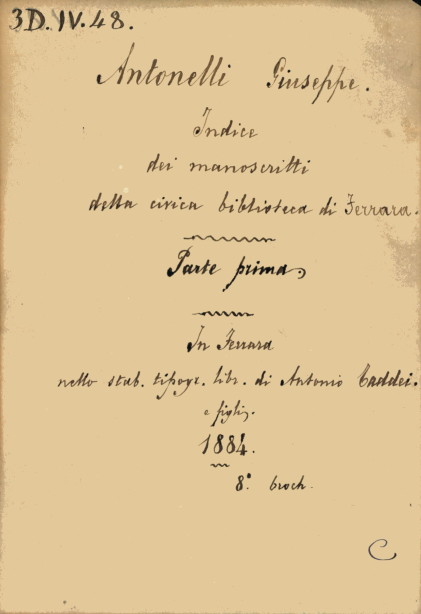 3D.IV.48.
Antonelli Giuseppe.
Indice
dei manoscritti
della civica biblioteca di Ferrara.
Parte prima,
In Ferrara
nello stab. tipogr. libr. di Antonio Taddei.
e figli,.
1884.
8°. broch.
C